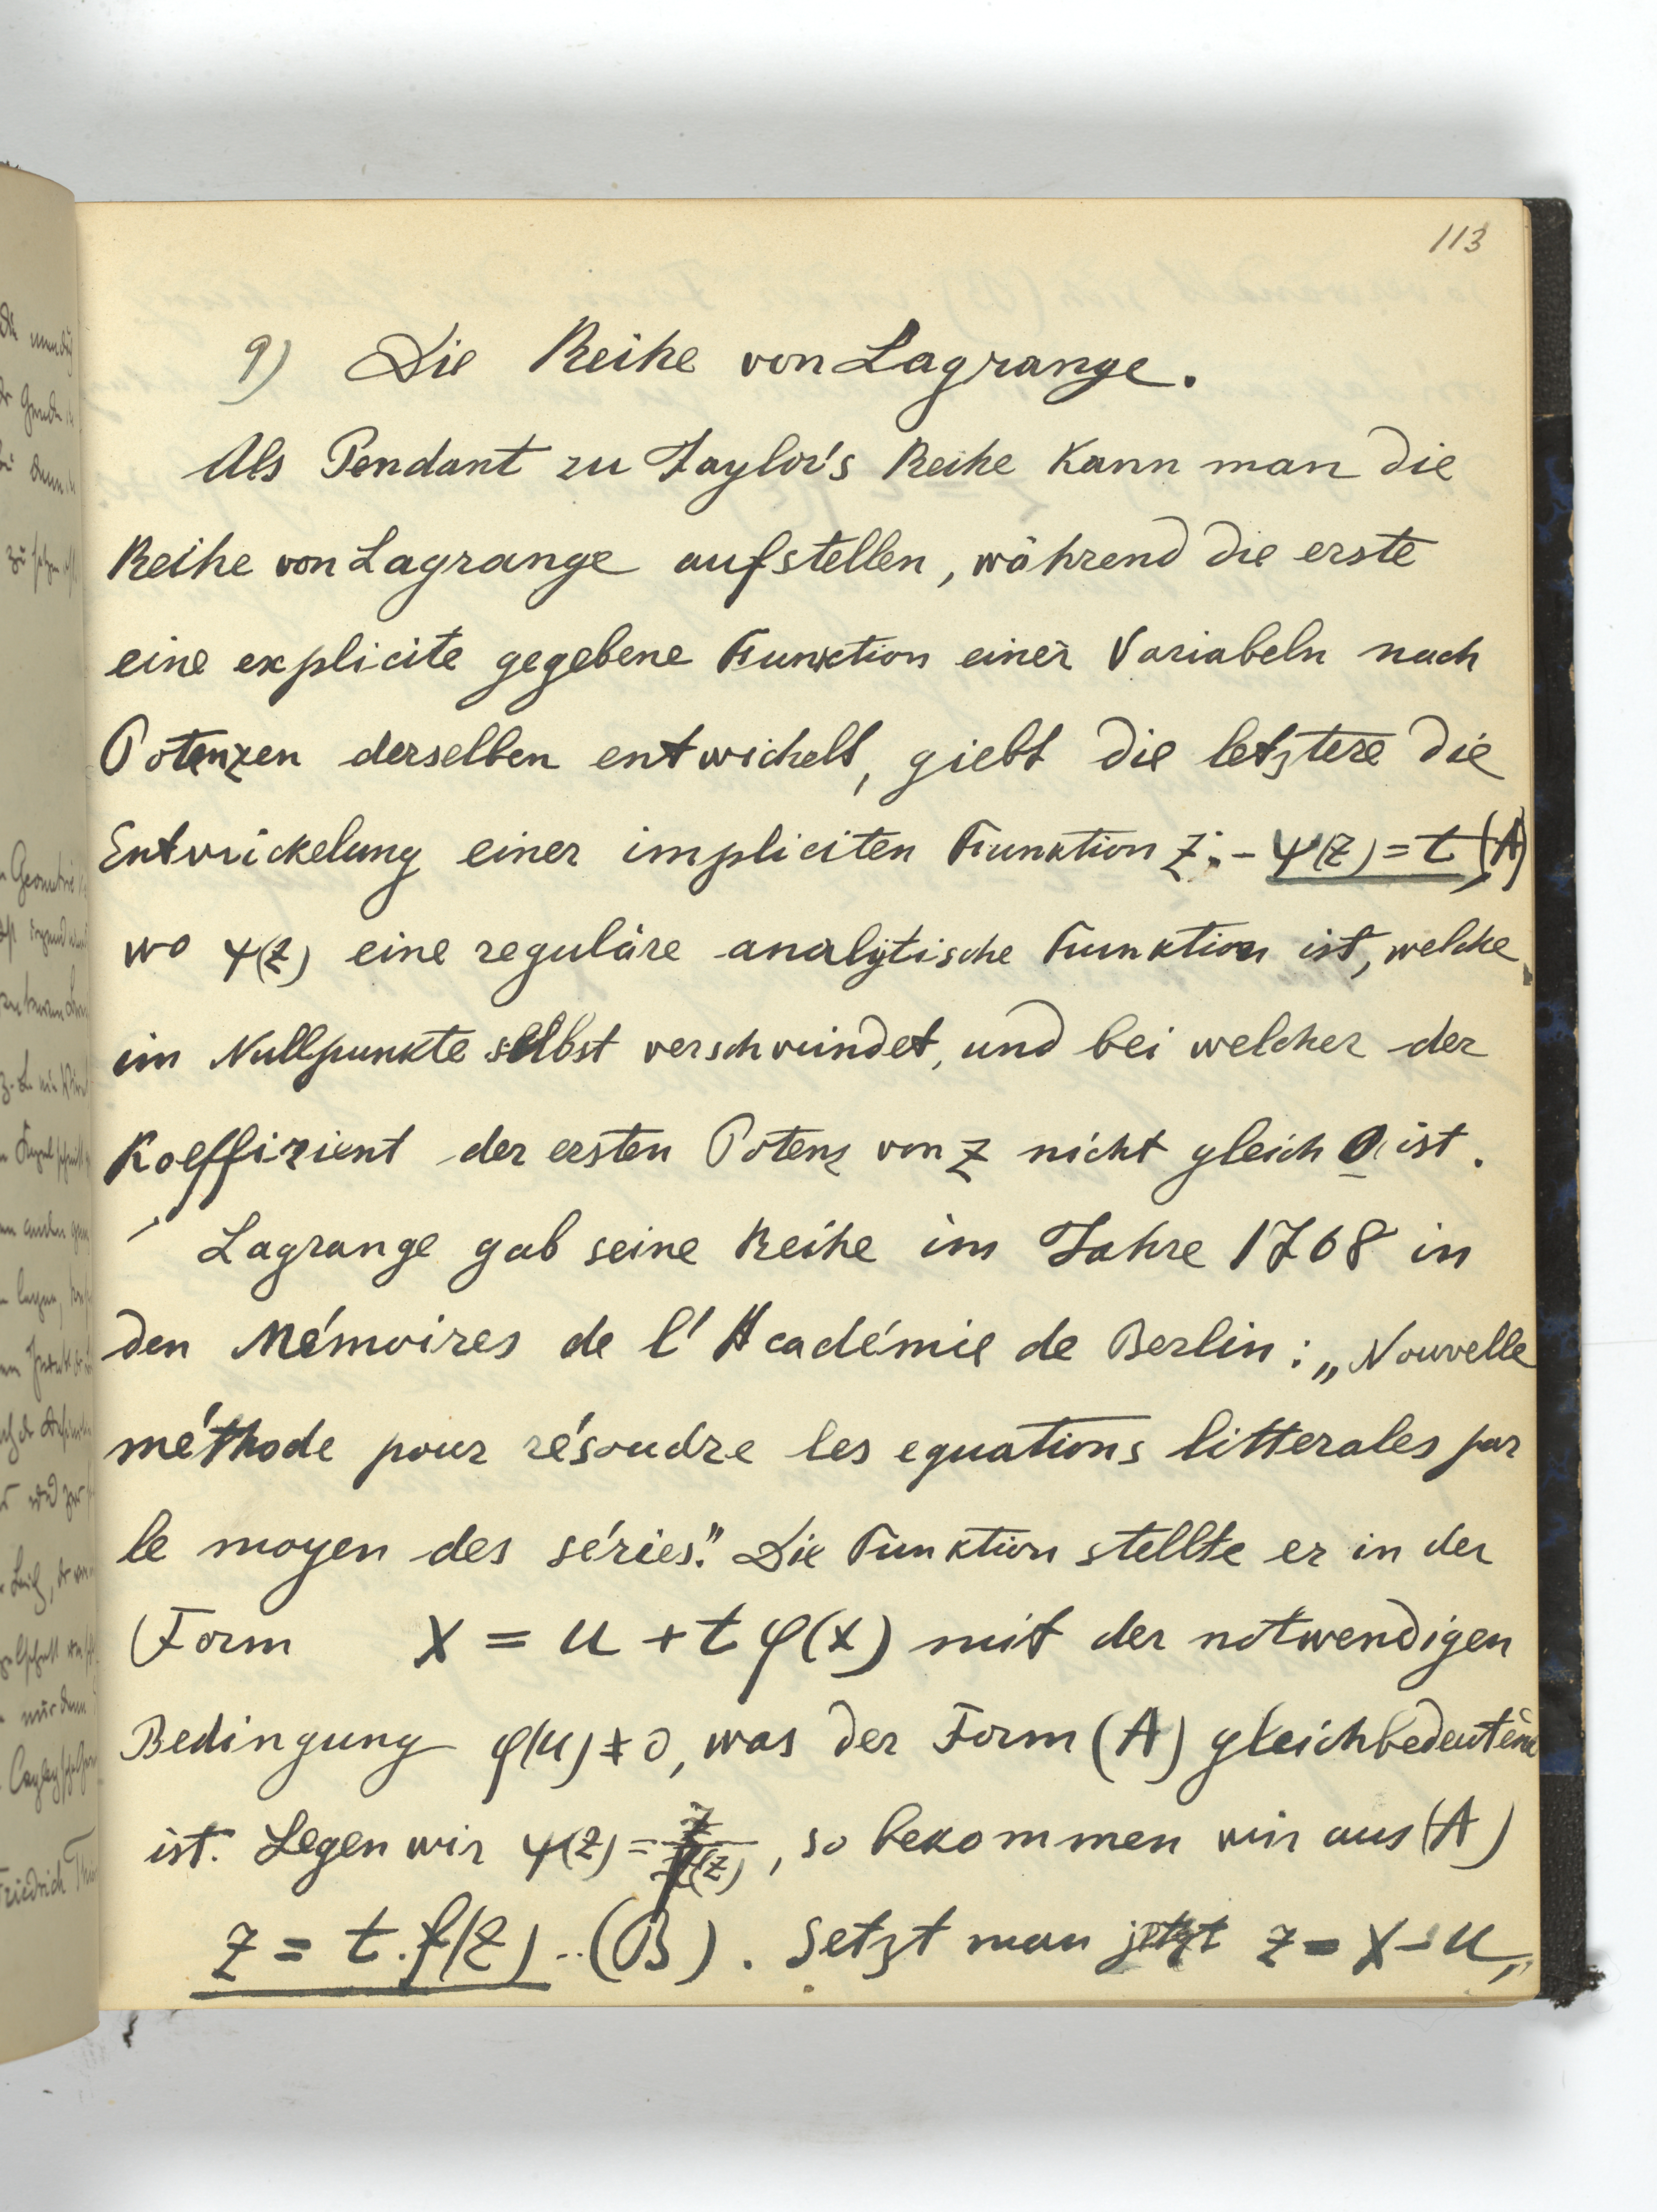 113
9) Die Reihe von Lagrange.
Als Pendant zu Taylor's Reihe kann man die
Reihe von Lagrange aufstellen, während die erste
eine explicite gegebene Funktion einer Variabeln nach
Potenzen derselben entwickelt, giebt die letztere die
Entwickelung einer impliciten Funktion z: - ψ(z) = t, (A)
wo ψ(z) eine reguläre analytische Funktion ist, welche
im Nullpunkte selbst verschwindet, und bei welcher der
Koeffizient der ersten Potenz von z nicht gleich 0 ist.
Lagrange gab seine Reihe im Jahre 1768 in
den Mémoires de l'Académie de Berlin: „Nouvelle
méthode pour résoudre les equations litterales par
le moyen des séries". Die Funktion stellte er in der
Form x = u + t φ(x) mit der notwendigen
Bedingung φ(u) ≠ 0, was der Form (A) gleichbedeutend
ist. Legen wir ψ(z) = z/f(z), so bekommen wir aus (A)
z = t . f(z) .. (B). Setzt man jetzt z = x - u,